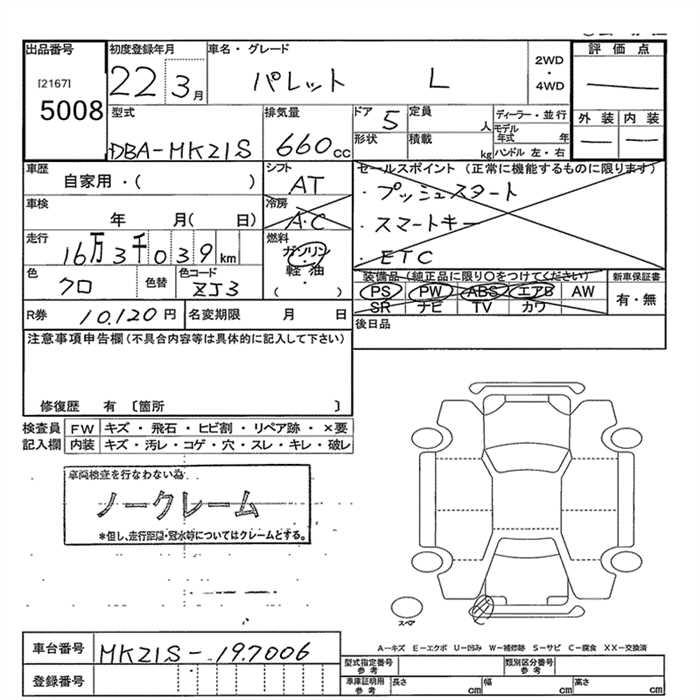 出品番号 初度登録年月 車名・グレード 評価点
[2167] 22 3月 パレット L 2WD ・ 4WD
5008 外装 内装
型式 排気量 ドア 5 定員 人 ディーラー・並行
DBA-MK21S 660cc 形状 積載 kg モデル年式 年
ハンドル 左・右
車歴 シフト セールスポイント(正常に機能するものに限ります)
自家用・( ) AT ・プッシュスタート
車検 冷房 ・スマートキー
年 月( 日) A・C ・ETC
走行 燃料
16万3千039km ガソリン・軽油・( )
色 色替 色コード 装備品(純正品に限り○をつけてください) 新車保証書
クロ ZJ3 PS PW ABS エアB AW 有・無
R券 10,120円 名変期限 月 日 SR ナビ TV カワ
後日品
注意事項申告欄(不具合内容等は具体的に記入して下さい)
修復歴 有〔箇所 〕
検査員 FW キズ・飛石・ヒビ割・リペア跡・×要
記入欄 内装 キズ・汚レ・コゲ・穴・スレ・キレ・破レ
車両検査を行なわない為
ノークレーム
*但し、走行距離・冠水等についてはクレームとする。
スペア
A-キズ E-エクボ U-凹み W-補修跡 S-サビ C-腐食 XX-交換済
車台番号 MK21S-197006
型式指定番号 参考 類別区分番号 参考
登録番号 車庫証明用 参考 長さ cm 幅 cm 高さ cm